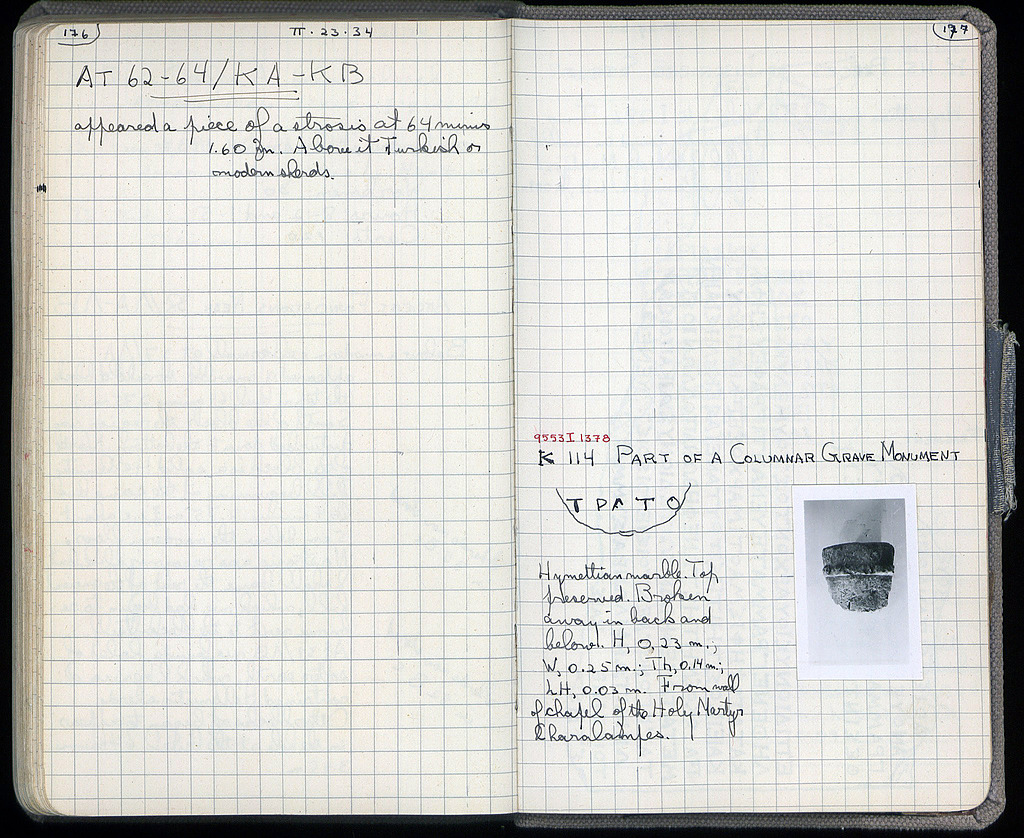 176
π·23·34
AT 62-64/KA-KB
appeared a piece of a strosis at 64 minus
1.60 m. Above it Turkish or
modern sherds.
177
9553 I 1378
K 114 PART OF A COLUMNAR GRAVE MONUMENT
T P A T O
Hymettian marble. Top
preserved. Broken
away in back and
below. H, 0,23 m.;
W, 0.25 m.; Th, 0.14 m.;
LH, 0.03 m. From wall
of chapel of the Holy Martyr
Charalampes.